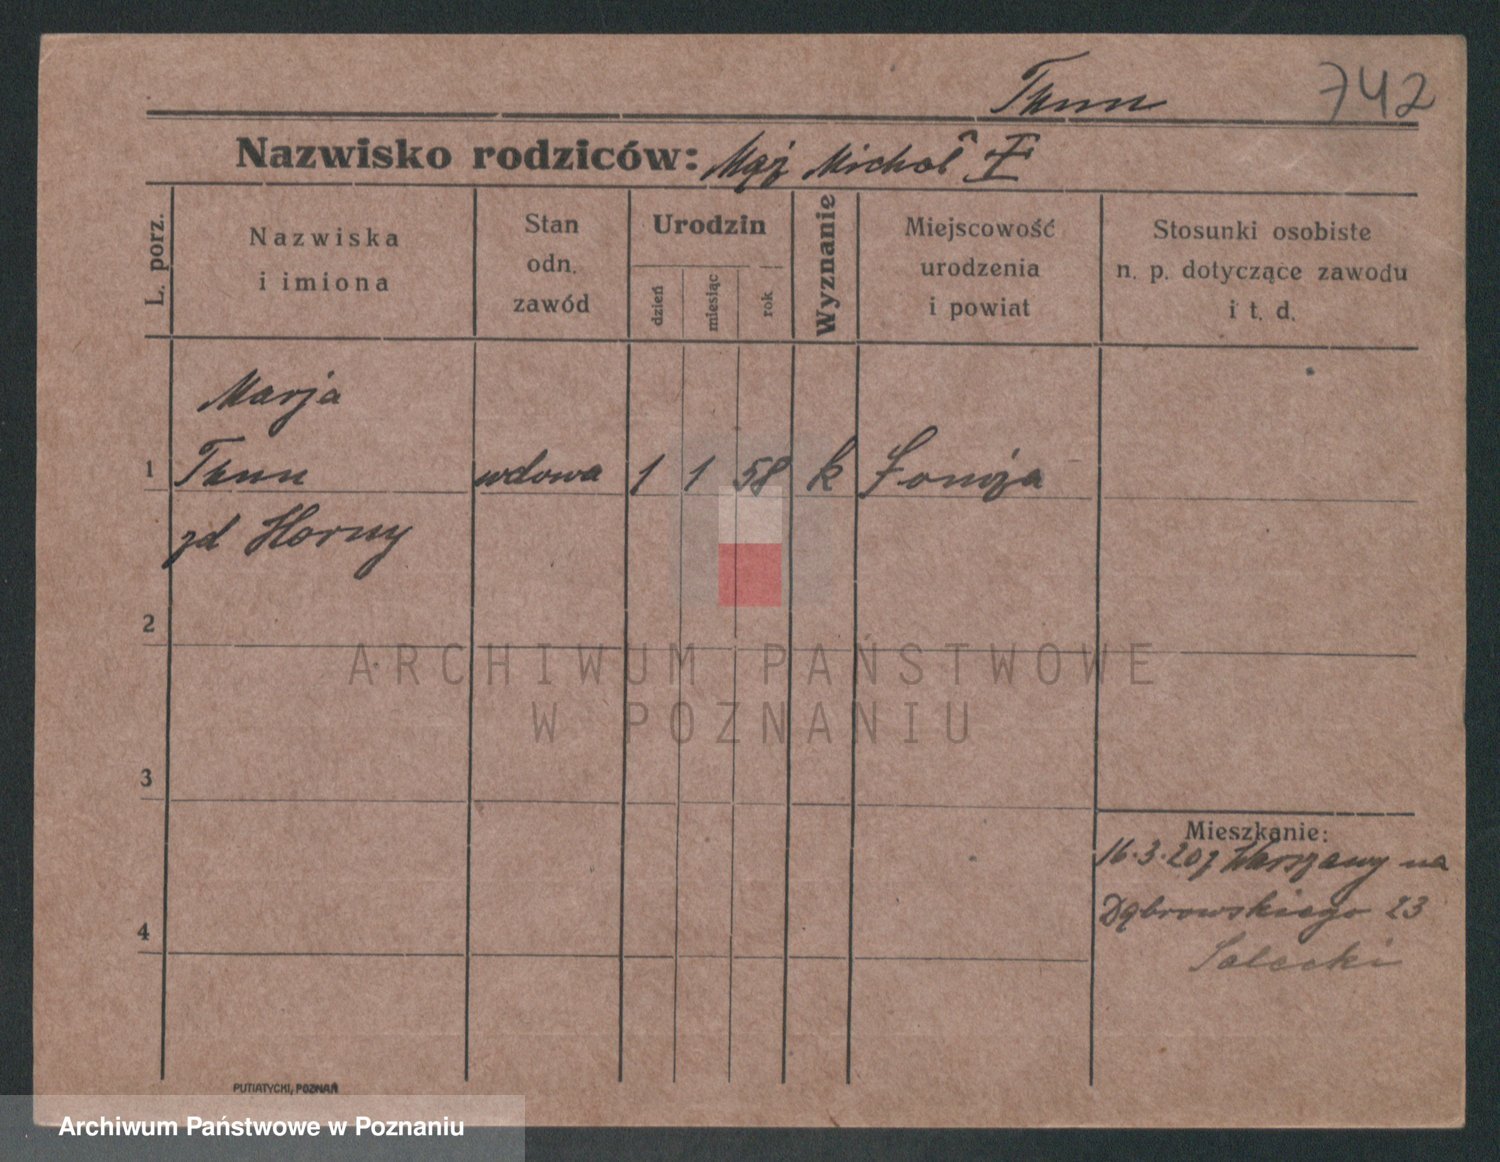 Thun 742
Nazwisko rodziców: Mąż Michał
L. porz.
Nazwiska
i imiona
Stan
odn.
zawód
Urodzin
dzień
miesiąc
rok
Wyznanie
Miejscowość
urodzenia
i powiat
Stosunki osobiste
n. p. dotyczące zawodu
i t. d.
Marja
1 Thun wdowa 1 1 58 k Łomża
zd Horny
2
ARCHIWUM PAŃSTWOWE
W POZNANIU
3
Mieszkanie:
16.3.20 z Warszawy na
Dąbrowskiego 23
4
Solecki
PUTIATYCKI, POZNAŃ
Archiwum Państwowe w Poznaniu